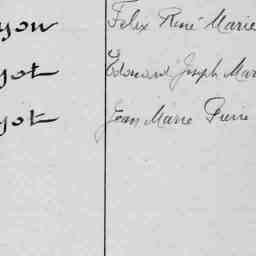 yon Félix René Marie
yot Edouard Joseph Mar
yot Jean Marie Pierre